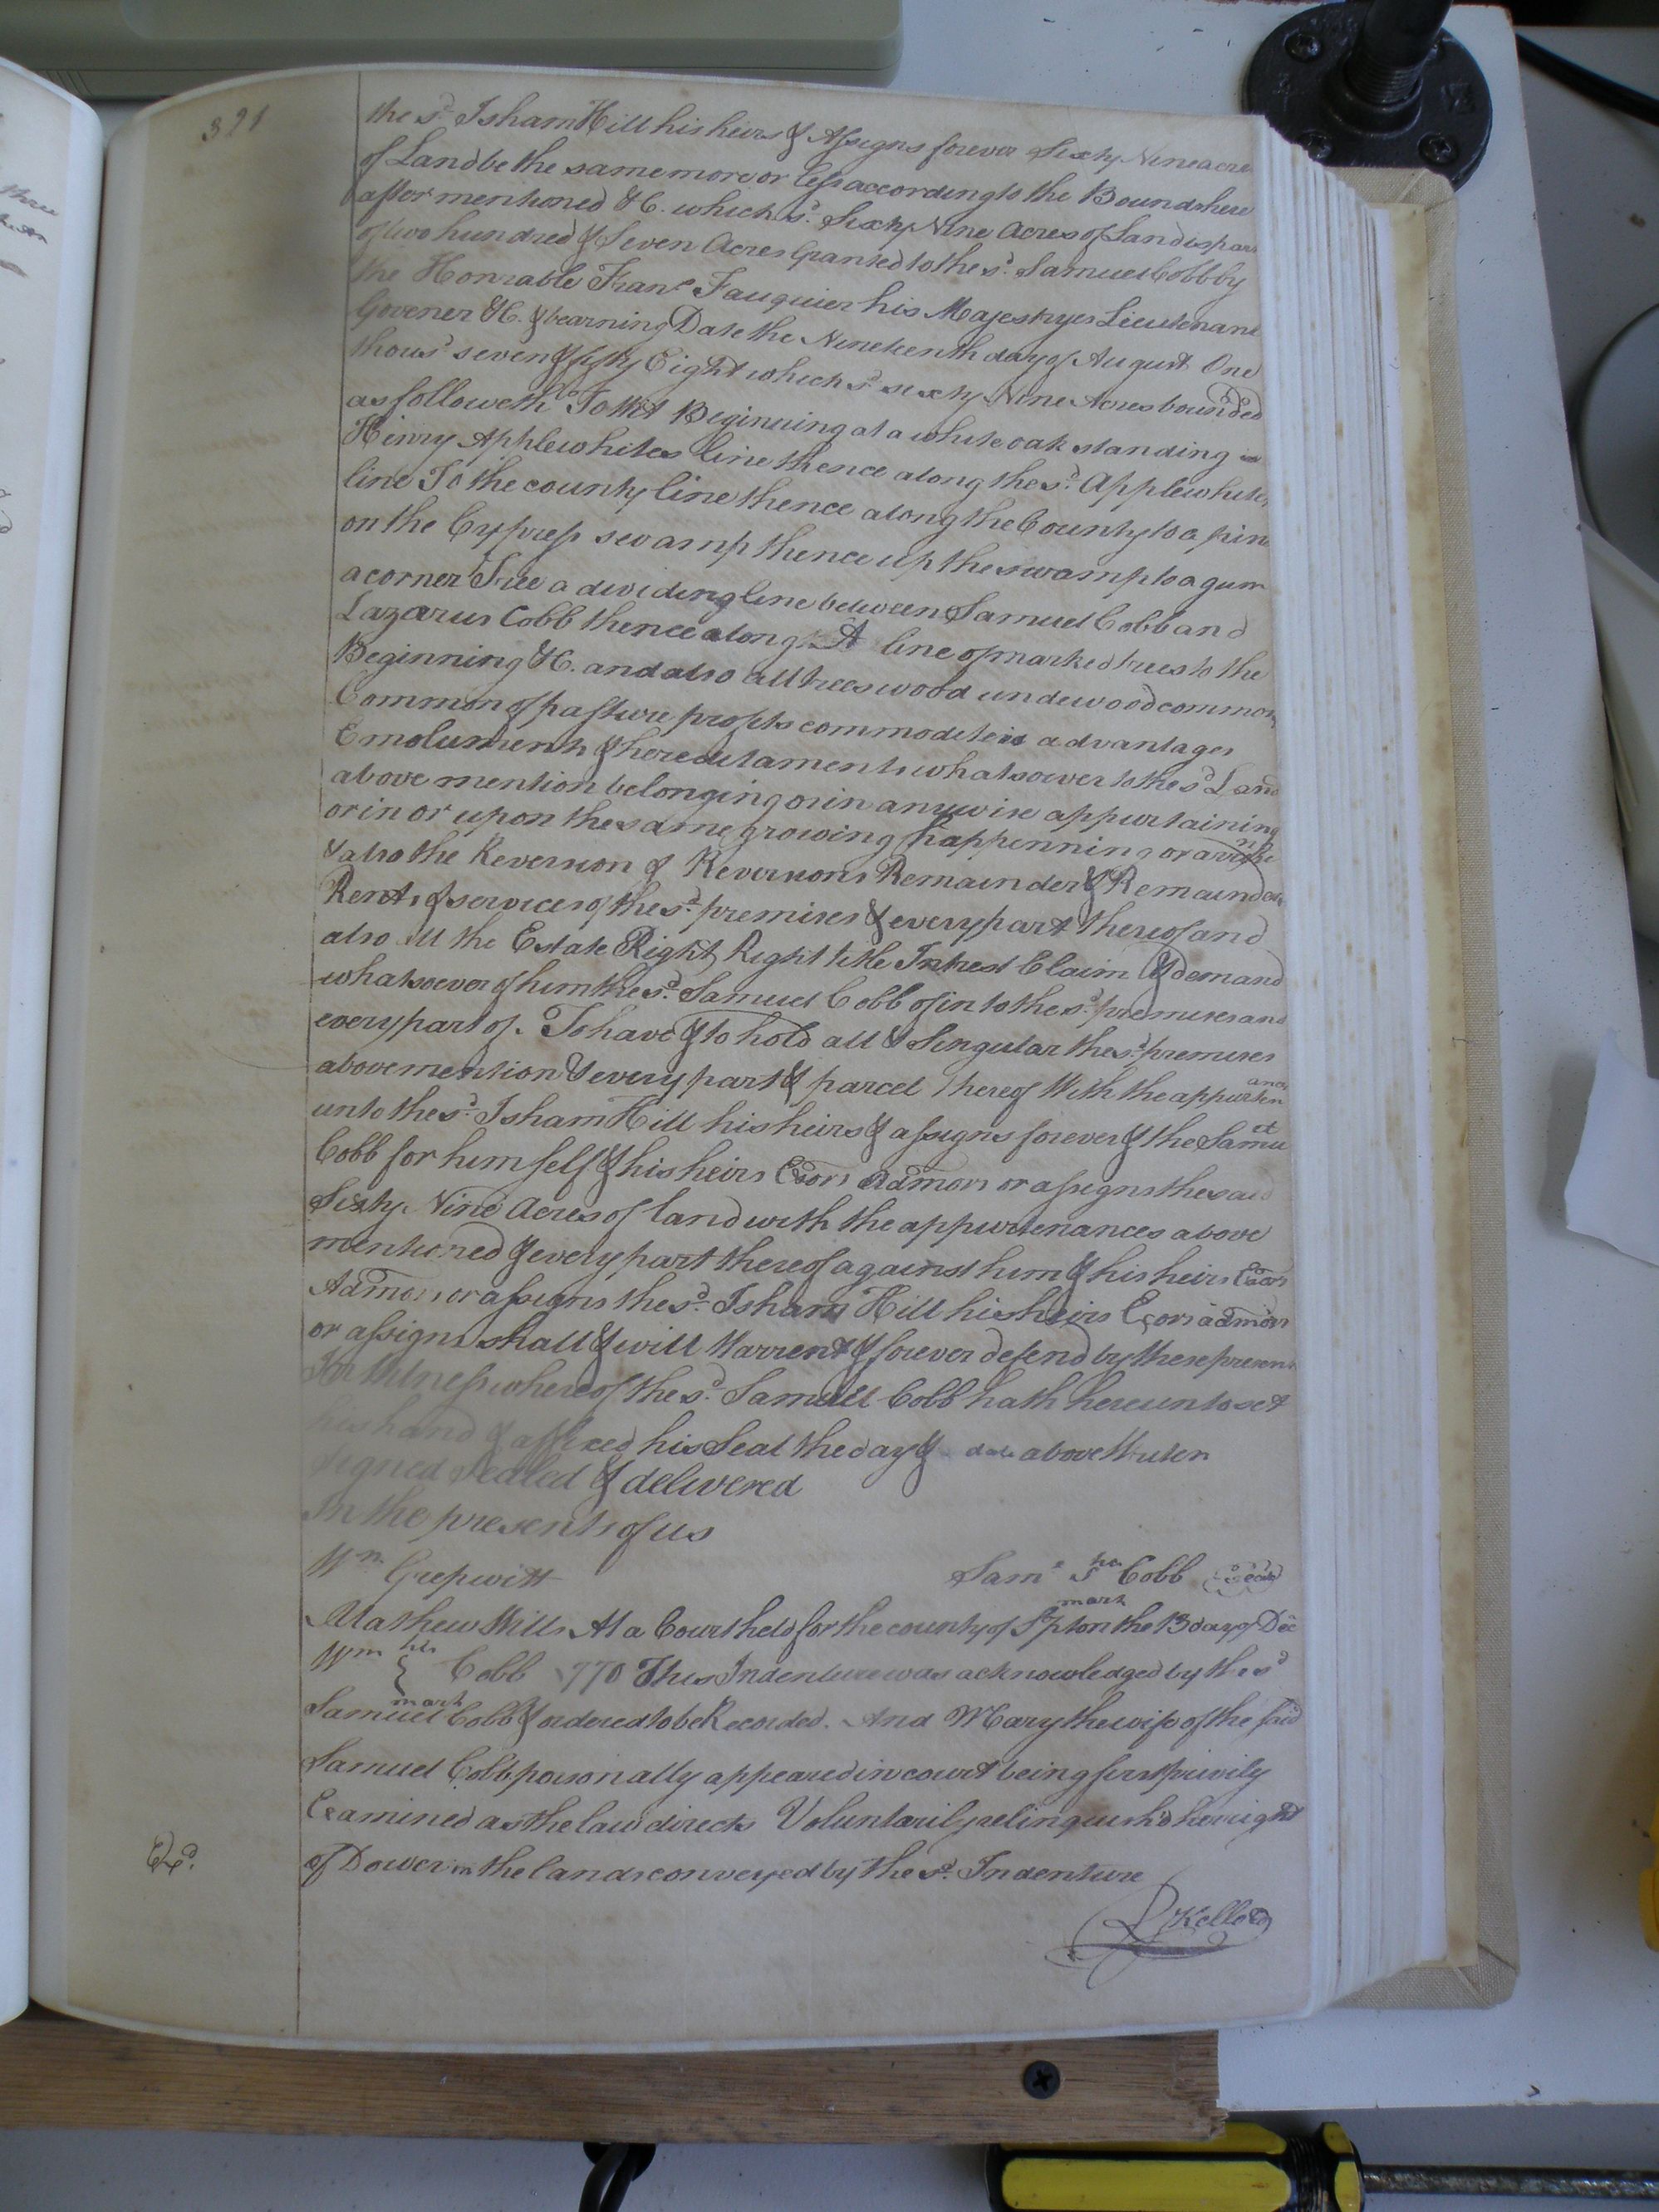 391
the sd. Isham Hill his heirs & Assigns forever Sixty Nine acre
of Land be the same more or less according to the Bounds here
after mentioned &C. which sd. Sixty Nine Acres of Land is part
of two hundred & Seven Acres Granted to the sd. Samuel Cobb by
the Honrable Frans Fauquier his Majestyes Lieutenant
Govener &C. & bearning Date the Nineteenth day of August One
thous'd seven & fifty Eight which sd sixty Nine Acres bounded
as followeth To Wit Beginning at a white oak standing in
Henry Applewhites line thence along the sd. Applewhites
line To the county line thence along the County to a pine
on the Cypress swamp thence up the swamp to a gum
a corner Tree a dividing line between Samuel Cobb and
Lazarus Cobb thence along A line of marked trees to the
Beginning &C. and also all trees wood undewood commons
Common of pasture profits commoditeis advantages
Emoluments & hereditaments whatsoever to the sd Land
above mention belonging or in anywise appurtaining
or in or upon the same growing happenning or
& also the Reversion & Reversions Remainder & Remainders
Rents & services of the sd. premises & every part thereof and
also all the Estate Right Right title Intrest Claim & demand
whatsoever of him the sd. Samuel Cobb of in to the sd. premises and
every part of. To have & to hold all & Singular the sd. premises
above mention & every part & parcel thereof With the appurtenances
unto the sd. Isham Hill his heirs & assigns forever & the Samuel
Cobb for himself & his heirs Exors Admors or assigns the said
Sixty Nine Acres of land with the appurtenances above
mentioned & every part thereof against him & his heirs Exors
Admors or assigns the sd. Isham Hill his heirs Exors admors
or assigns shall & will Warrent & forever defend by these presents
In Witness whereof the sd. Samuel Cobb hath hereunto set
his hand & affixed his Seal the day & date above Writen
Signed Sealed & delivered
In the presents of us
Wm. Samll his Cobb Seal
mark
Mathew Wills At a Court held for the county of Spton the 13 day of Dec
Wm his Cobb 1770 This Indenture was acknowledged by the sd
mark
Samuel Cobb & ordered to be Recorded. And Mary the wife of the said
Samuel Cobb personally appeared in court being first privily
Examined as the law directs Voluntarily relinquish'd her right
of Dower in the lands conveyed by the sd. Indenture
Exd.
R Kello